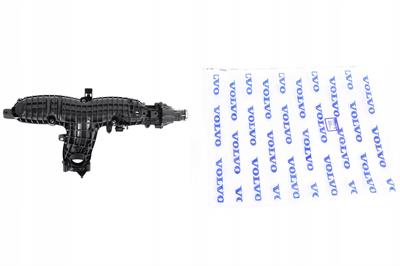 VOLVO VOLVO VOLVO VOLVO VOLVO
VOLVO VOLVO VOLVO VOLVO
VOLVO VOLVO VOLVO VOLVO VOLVO
VOLVO VOLVO VOLVO VOLVO
VOLVO VOLVO VOLVO VOLVO VOLVO